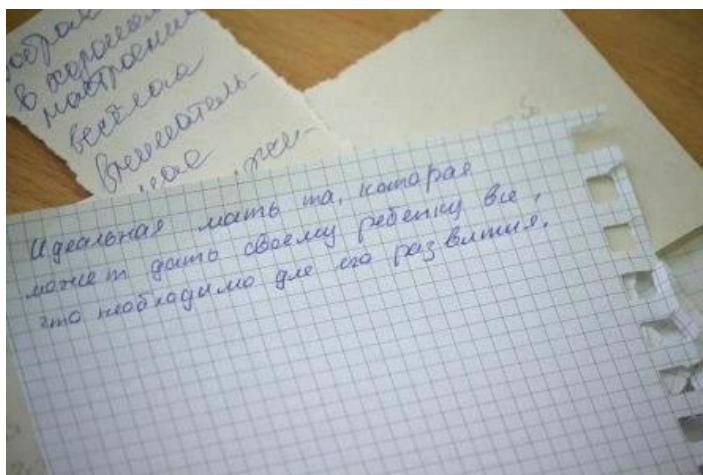 добрая
в хорошем
настроении
весёлая
вниматель-
ная
Идеальная мать та, которая
может дать своему ребенку все,
что необходимо для его развития.